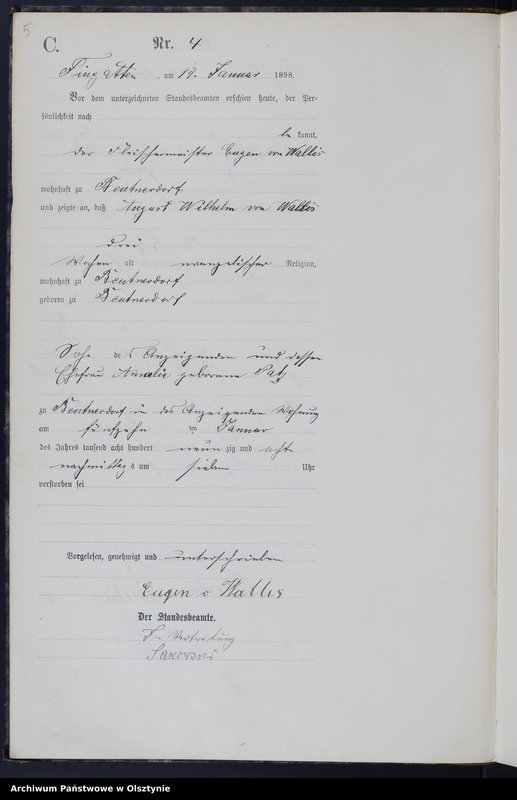 5
C.
Nr. 4
am 17. Januar 1898.
Vor dem unterzeichneten Standesbeamten erschien heute, der Per-
sönlichkeit nach
be kannt,
der Fleischermeister Eugen von Wallis
wohnhaft zu Beutnerdorf
und zeigte an, daß August Wilhelm von Wallis
drei
Wochen alt evangelischer Religion,
wohnhaft zu Beutnerdorf
geboren zu Beutnerdorf
Sohn des Anzeigenden und dessen
Ehefrau Amalie geborene Patz
zu Beutnerdorf in des Anzeigenden Wohnung
am fünfzehn ten Januar
des Jahres tausend acht hundert neun zig und acht
nachmittags um sieben Uhr
verstorben sei
Vorgelesen, genehmigt und unterschrieben
Eugen v Wallis
Der Standesbeamte.
In Vertretung
Archiwum Państwowe w Olsztynie